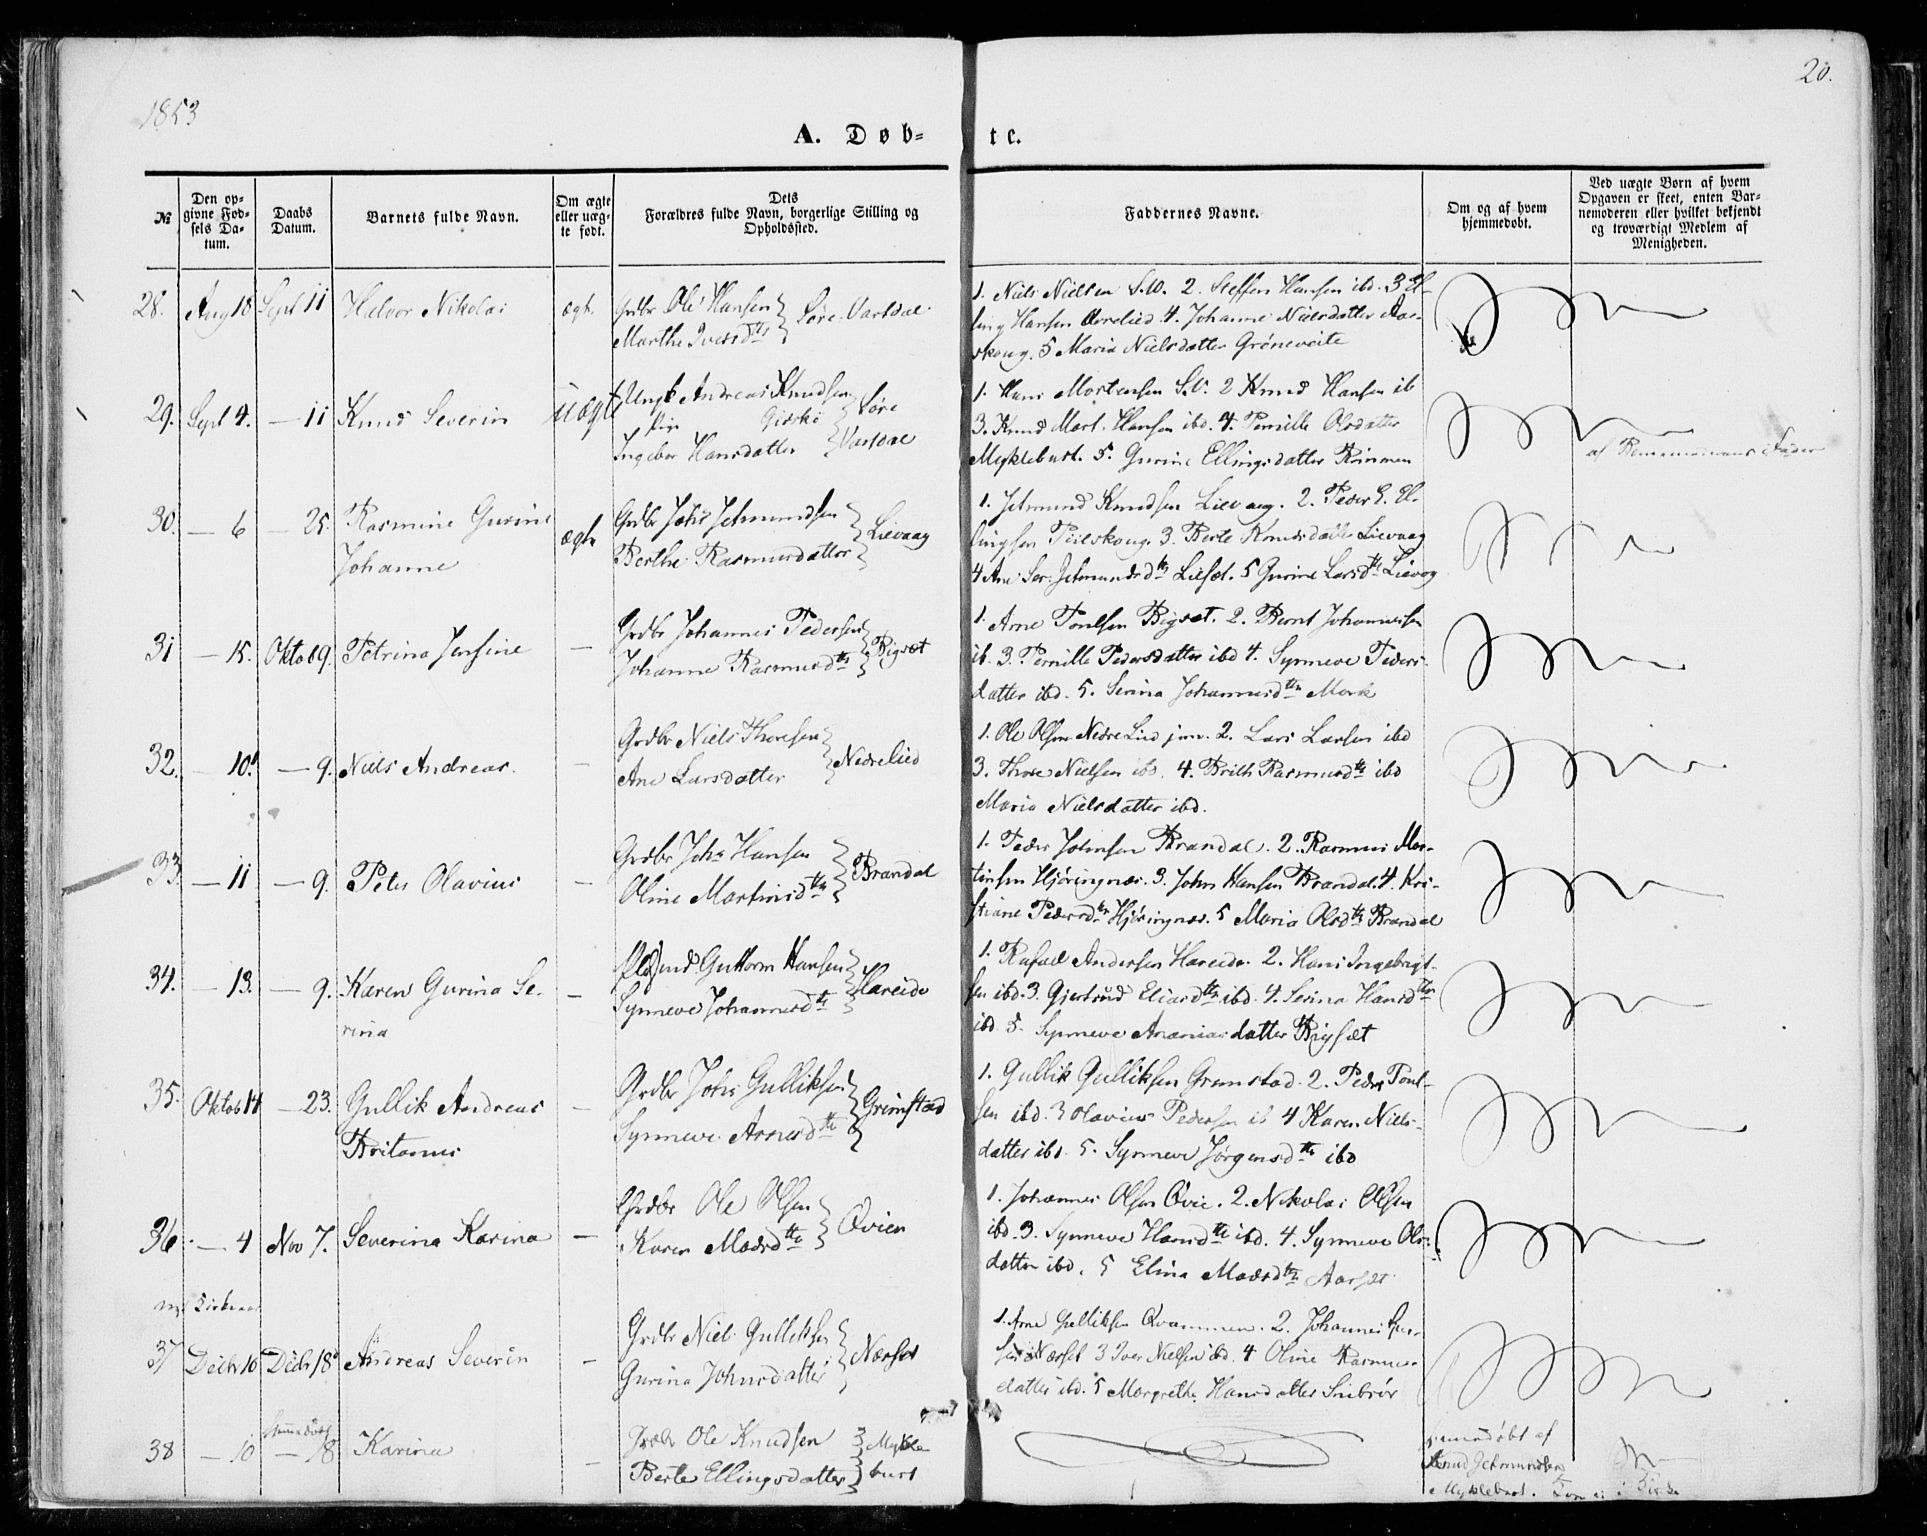 1853
20.
A. Døb-
te.
№
Den op-
givne Fød-
sels Da-
tum.
Daabs
Datum.
Barnets fulde Navn.
Om ægte
eller uæg-
te født.
Dets
Forældres fulde Navn, borgerlige Stilling og
Opholdssted.
Faddernes Navne.
Om og af hvem
hjemmedøbt.
Ved uægte Børn af hvem
Opgaven er skeet, enten Bar-
nemoderen eller hvilket bekjendt
og troværdigt Medlem af
Menigheden.
28. Aug 18 Sept 11 Halvor Nikolai ægte Grdbr Ole Hansen
Marthe Iversdtr
Søre-Vartdal
1. Niels Nielsen S.V. 2. Steffen Hansen ibd. 3 El-
ling Hansen Øvrelied 4. Johanne Nielsdatter Aar-
skoug. 5 Maria Nielsdatter Grøneveite
29. Sept 4. — 11 Knud Severin uægte Ungk Andreas Knudsen
Pige Giskø
Ingebor Hansdatter
Søre
Vartdal
1. Hans Mortensen S.V. 2 Knud Hansen ib
3. Knud Mart. Hansen ibd. 4. Pernille Olsdatter
Myklebust. 5. Gurine Ellingsdatter Brimnen
af Barnemoderens Fader
30. — 6 — 25. Rasmine Gurine
Johanne
ægte
Grdbr Johs Jetmundsen
Berthe Rasmusdatter
Lievaag
1. Jetmund Knudsen Lievaag. 2. Peder E. El-
lingsen Pilskoug. 3. Berte Knudsdatter Lievaag
4 Ane Ser. Jetmundsdtr Liesæt. 5 Gurine Larsdtr Lievag
31 — 15. Oktob 9. Petrina Jensine — Grdbr Johannes Pedersen
Johanne Rasmusdtr
Bigset
1. Arne Poulsen Bigset. 2. Bernt Johannessen
ib. 3. Pernille Pedersdatter ibd 4. Synneve Peders-
datter ibd. 5. Serina Johannesdtr Mork
32. — 10. — 9. Niels Andreas. — Grdbr Niels Thoresen
Ane Larsdatter
Nedrelied
1. Ole Olsen Nedre Lied jun. 2. Lars Larsen ibd
3. Thore Nielsen ibd. 4. Brith Rasmusdtr ibd
Maria Nielsdatter ibd.
33. — 11 — 9. Peter Olavius — Grdbr Johs Hansen
Oline Martinsdtr
Brandal
1. Peder Johnsen Brandal. 2. Rasmus Mar-
tinsen Hjøringnæs. 3. John Hansen Brandal. 4. Kri-
stiane Pedersdtr Hjøringnæs. 5 Maria Olsdtr Brandal
34. — 13. — 9. Karen Gurina Se-
rina
— Guttorm Hansen
Synneve Johannesdtr
Hareide
1. Rafael Andersen Hareide. 2. Hans Ingebrigt-
sen ibd. 3. Gjertrud Eliasdtr ibd. 4. Serina Hansdtr
ibd 5. Synneve Ananiasdatter Bigset
35. Oktob 14 — 23. Gullik Andreas
Britanus
— Grdbr Johs Gulliksen
Synneve Arnesdtr
Grimstad
1. Gullik Gulliksen Grimstad. 2. Peder Poul-
sen ibd. 3 Olavius Pedersen ib 4 Karen Niels-
datter ibd. 5. Synneve Jørgensdtr ibd
36. — 4 Nov 7. Severina Karina — Grdbr Ole Olsen
Karen Madsdtr
Qvien
1. Johannes Olsen Qvie. 2. Nikolai Olsen
ibd. 3. Synneve Hansdtr ibd. 4. Synneve Ols-
datter ibd. 5 Elina Madsdtr Aarset
37 Decbr 10 Decbr 18 Andreas Severin — Grdbr Niels Gulliksen
Gurina Johnsdatter
Nærset
1. Arne Gulliksen Qvammen. 2. Johannes
Nærset 3 Iver Nielsen ibd. 4 Oline Rasmus-
datter ibd. 5 Margrethe Hansdatter Snibrør
38 — 10 — 18 Karina — Grdbr Ole Knudsen
Berte Ellingsdatter
Mykle
bust
hjemmedøbt af
Knud Jetmundsen
Myklebust.